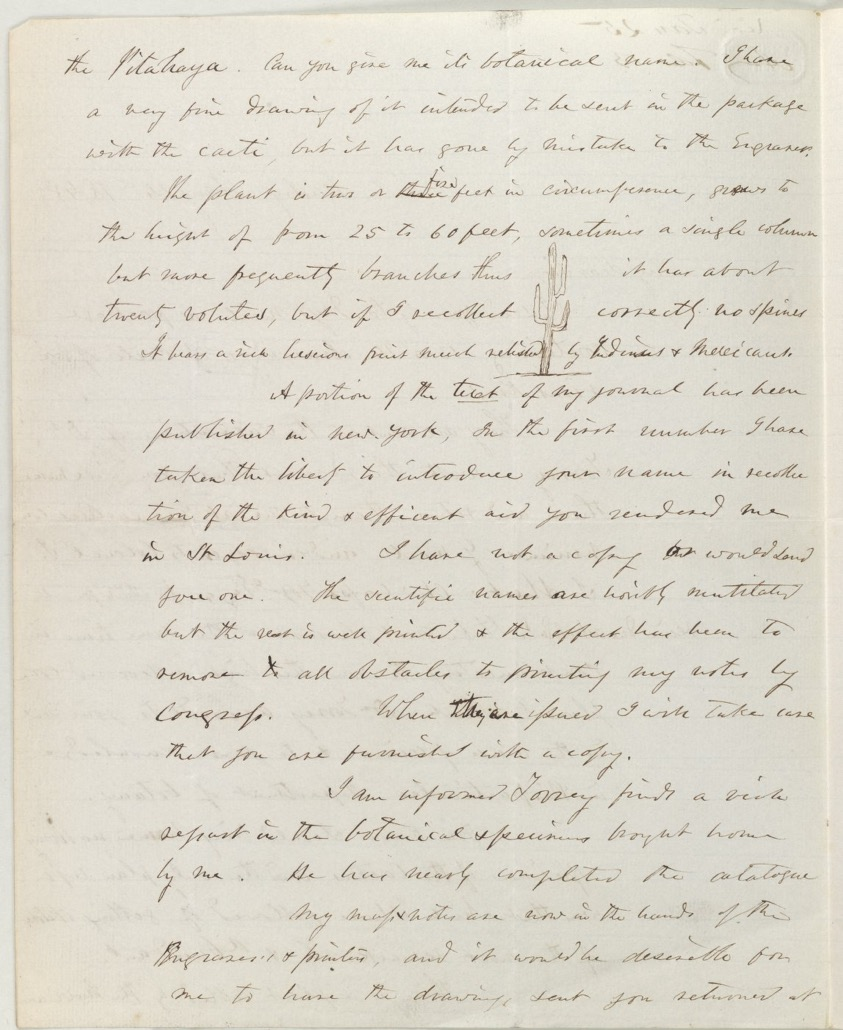 the Pitahaya. Can you give me its botanical name. I have
a very fine drawing of it intended to be sent in the package
with the cacti, but it has gone by mistake to the Engravers.
The plant is two or three five feet in circumference, grows to
the height of from 25 to 60 feet, sometimes a single column
but more frequently branches thus it has about
twenty volutes, but if I recollect correctly no spines
It bears a rich lucious fruit much relished by Indians & Mexicans.
A portion of the text of my journal has been
published in new-York, In the first number I have
taken the liberty to introduce your name in recollec
tion of the kind & efficent aid you rendered me
in St Louis. I have not a copy or would send
you one. The scientific names are horribly mutilated
but the rest is well printed & the effect has been to
remove all obstacles to printing my notes by
Congress. When they are issued I will take care
that you are furnished with a copy.
I am informed Torrey finds a rich
repast in the botanical specimens brought home
by me. He has nearly completed the catalogue
My map & notes are now in the hands of the
Engravers & printers, and it would be desirable for
me to have the drawings sent you returned at